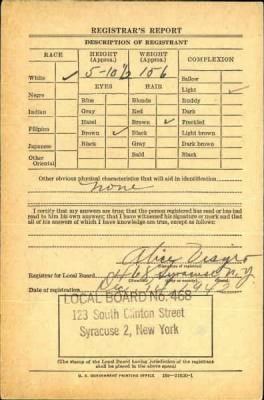 REGISTRAR'S REPORT
DESCRIPTION OF REGISTRANT
RACE HEIGHT (Approx.) WEIGHT (Approx.) COMPLEXION
5-10½ 156
White ✓ Sallow
EYES HAIR Light ✓
Negro Blue Blonde Ruddy
Indian Gray Red Dark
Hazel Brown ✓ Freckled
Filipino Brown ✓ Black Light brown
Japanese Black Gray Dark brown
Other Oriental Bald Black
Other obvious physical characteristics that will aid in identification
none
I certify that my answers are true; that the person registered has read or has had
read to him his own answers; that I have witnessed his signature or mark and that
all of his answers of which I have knowledge are true, except as follows:
Alice
(Signature of registrar)
Registrar for Local Board 468 Syracuse N. Y.
Date of registration
LOCAL BOARD NO. 468
123 South Clinton Street
Syracuse 2, New York
(The stamp of the Local Board having jurisdiction of the registrant
shall be placed in the above space)
U. S. GOVERNMENT PRINTING OFFICE